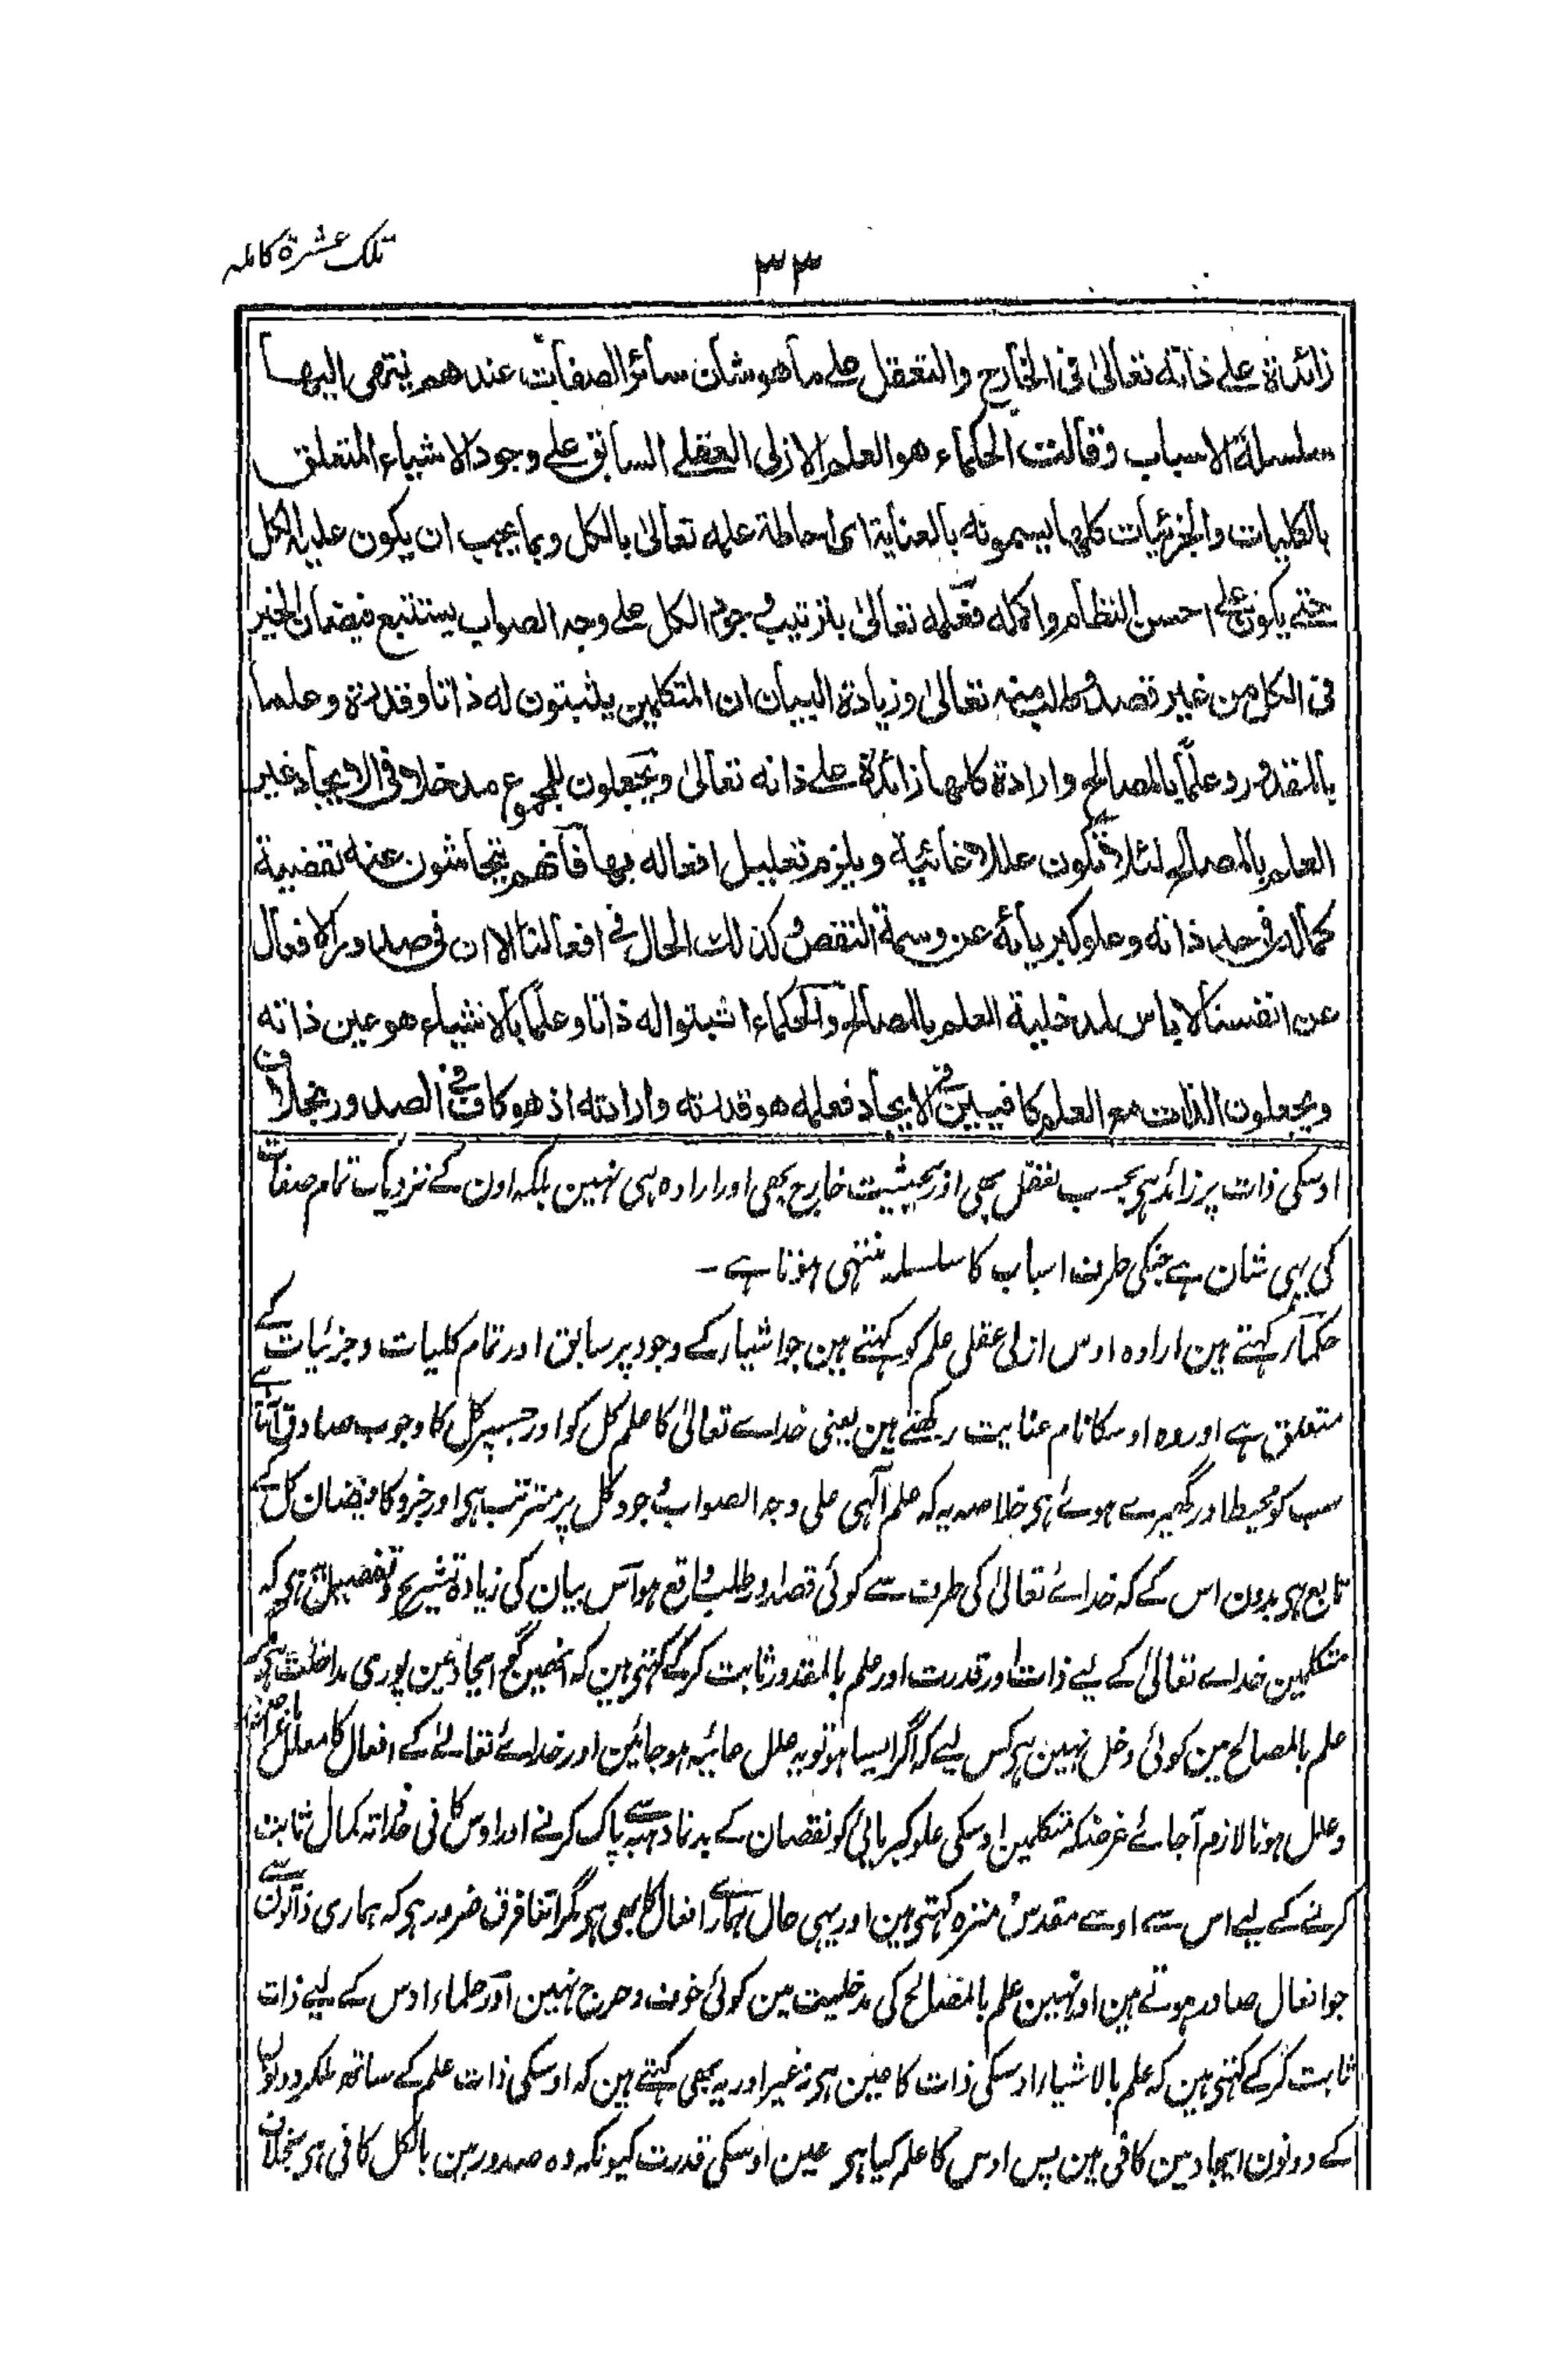 تلک عشرة کاملہ
۳۳
زائدة علے ذاته تعالیٰ فی الخارج والتعقل علے ما هو شان سائر الصفات عندهم ینتهی الیها
سلسلة الاسباب وقالت الحکماء هو العلم الازلی العقلے السابق علے وجود الاشیاء المتعلق
بالکلیات والجزئیات کلها یسمونه بالعنایة ای احاطة علمه تعالیٰ بالکل وبما یجب ان یکون علیه الکل
حتے یکون علے احسن النظام واکمله فعلمه تعالیٰ بترتیب وجود الکل علے وجه الصواب یستتبع فیضان الخیر
فی الکل من غیر قصد وطلب منه تعالیٰ وزیادة البیان ان المتکلمین یثبتون له ذاتا وقدرة وعلما
بالمقدور وعلماً بالمصالح وارادة کلها زائدة علے ذاته تعالیٰ ویجعلون للمجموع مدخلا فی الایجاد غیر
العلم بالمصالح لئلا تکون عللا غائیة ویلزم تعلیل افعاله بها فانهم یتحاشون عنه تقضیة
کماله فی حد ذاته وعلو کبریائه عن وسمة النقص وکذلک الحال فے افعالنا الا ان فی صدور الافعال
عن انفسنا لا باس لمدخلیة العلم بالمصالح والحکماء اثبتوا له ذاتا وعلماً بالاشیاء هو عین ذاته
ویجعلون الذات مع العلم کافیین فے الایجاد فعلمه هو قدرته وارادته اذ هو کاف فے الصدور بخلاف
اوسکی ذات پر زائد ہی بحسب تعقل بھی از بحیثیت خارج بھی اور ارادہ ہی نہین بلکہ اون کے نزدیک تمام صفات
کی یہی شان ہے جنکی طرف اسباب کا سلسلہ منتہی ہوتا ہے -
حکماء کہتے ہین ارادہ اوس ازلی عقلی علم کو کہتے ہین جو اشیاء کے وجود پر سابق اور تمام کلیات وجزئیات کے
متعلق ہے اور وہ اوسکا نام عنایت رکھتے ہین یعنی خداے تعالیٰ کا علم کل کو اور جسپر کل کا وجوب صادق آتا ہے
سب کو محیط اور گھیرے ہوئے ہی خلاصہ یہ کہ علم آلہی علی وجہ الصواب وجود کل پر مترتب ہی اور خیر کا فیضان کل کے
تابع ہی بدون اس کے کہ خداے تعالیٰ کی طرف سے کوئی قصد اور طلب واقع ہو اس بیان کی زیادہ تشریح وتفصیل یہ ہی کہ
متکلمین خداے تعالیٰ کے لیے ذات اور قدرت اور علم بالمقدور ثابت کر کے کہتی ہین کہ انھین ایجاد مین پوری مداخلت ہی
علم بالمصالح مین کوئی دخل نہین ہی کس لیے کہ اگر ایسا ہو تو یہ علل غائیہ ہو جائین اور خداے تعالےٰ کے افعال کا معلل
وعلل ہونا لازم آجائے غرضکہ متکلمین اوسکی علو کبریائی کو نقصان کے بدنما دہبے سے پاک کرنے اور اوس کا فی ذاتہ کمال ثابت
کرنے کے لیے اس سے اوسے مقدس ومنزہ کہتی ہین اور یہی حال ہمارے افعال کا بھی ہی مگر اتنا فرق ضرور ہی کہ ہماری ذاتون سے
جو افعال صادر ہوتے ہین اونہین علم بالمصالح کی مدخلیت مین کوئی خوف وحرج نہین اور حکماء اوس کے لیے ذات
ثابت کر کے کہتی ہین کہ علم بالاشیاء اوسکی ذات کا عین ہی نہ غیر اور یہ بھی کہتے ہین کہ اوسکی ذات علم کے ساتھ ملکر دونون
کے دونون ایجاد مین کافی ہین پس اوس کا علم کیا ہی عین اوسکی قدرت کیونکہ وہ صدور مین بالکل کافی ہی بخلاف